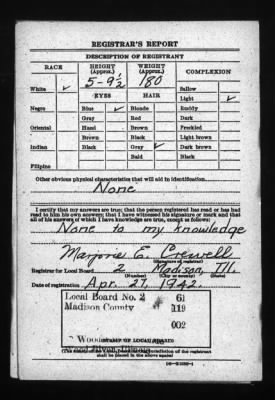 REGISTRAR'S REPORT
DESCRIPTION OF REGISTRANT
RACE HEIGHT (Approx.) WEIGHT (Approx.) COMPLEXION
5-9½ 180 Sallow
White ✓ EYES HAIR Light ✓
Negro Blue ✓ Blonde Ruddy
Gray Red Dark
Oriental Hazel Brown Freckled
Brown Black Light brown
Indian Black Gray ✓ Dark brown
Bald Black
Filipino
Other obvious physical characteristics that will aid in identification
None
I certify that my answers are true; that the person registered has read or has had
read to him his own answers; that I have witnessed his signature or mark and that
all of his answers of which I have knowledge are true, except as follows:
None to my knowledge
Marjorie E. Crewell
(Signature of registrar)
Registrar for Local Board 2 Madison, Ill.
(Number) (City or county)
Date of registration Apr. 27, 1942
Local Board No. 2 61
Madison County 119
002
(STAMP OF LOCAL BOARD)
shall be placed in the above space)